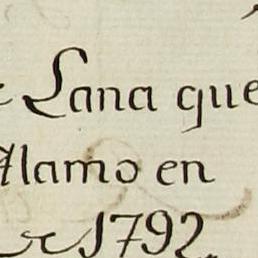 Lana que
Alamo en
1792.